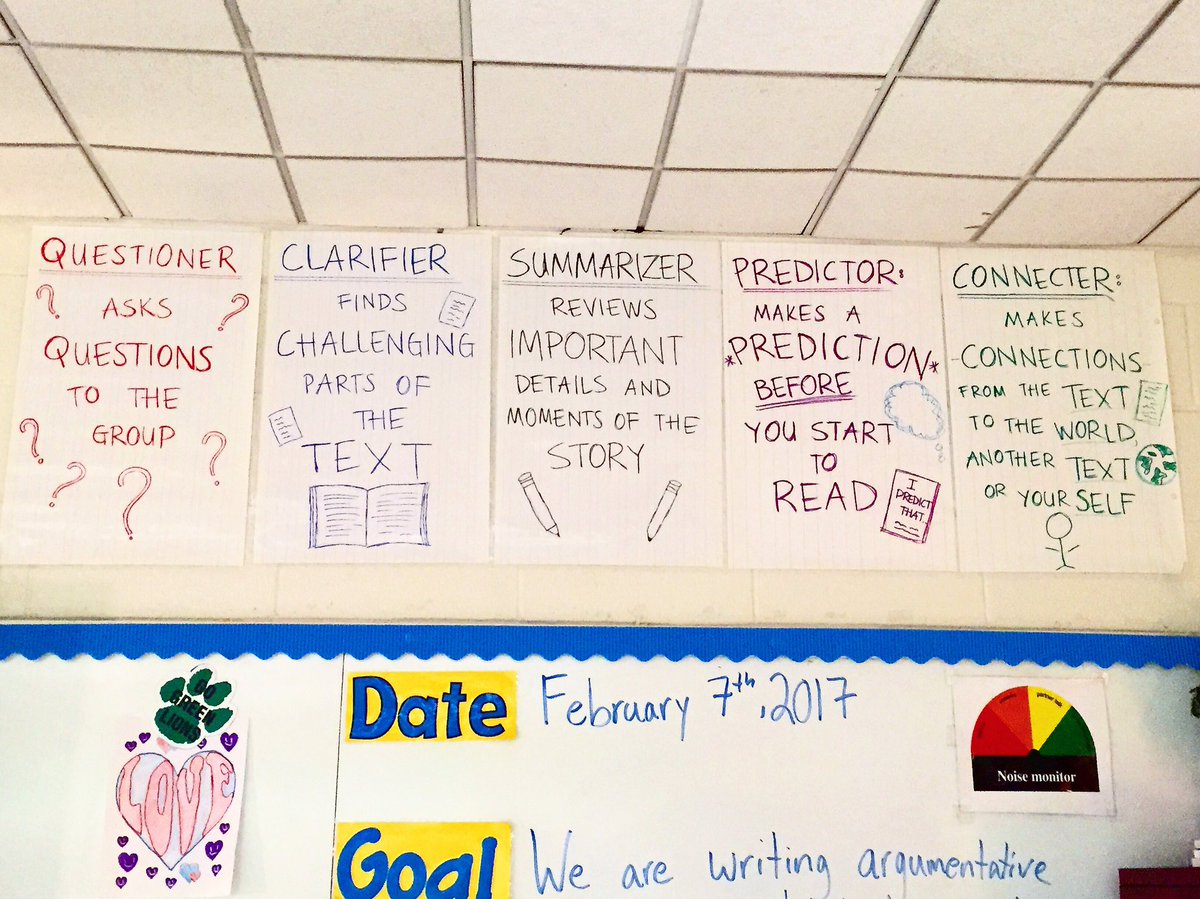 QUESTIONER
ASKS
QUESTIONS
TO THE
GROUP
CLARIFIER
FINDS
CHALLENGING
PARTS OF
THE
TEXT
SUMMARIZER
REVIEWS
IMPORTANT
DETAILS AND
MOMENTS OF THE
STORY
PREDICTOR:
MAKES A
*PREDICTION*
BEFORE
YOU START
TO
READ
I
PREDICT
THAT
CONNECTER:
MAKES
CONNECTIONS
FROM THE TEXT
TO THE WORLD,
ANOTHER TEXT
OR YOURSELF
GO
GREEN
LIONS
LOVE
Date February 7th, 2017
Noise monitor
Goal We are writing argumentative